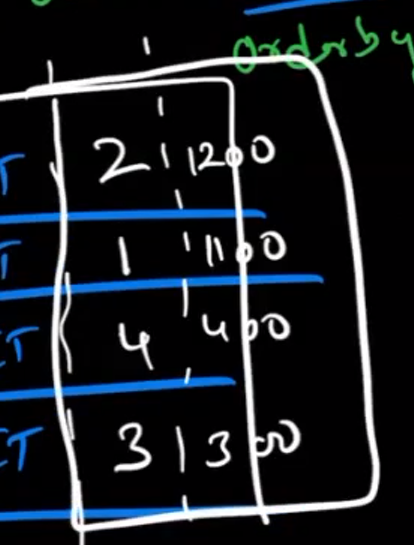 Order by
T 2 1200
T 1 1100
CT 4 400
CT 3 300